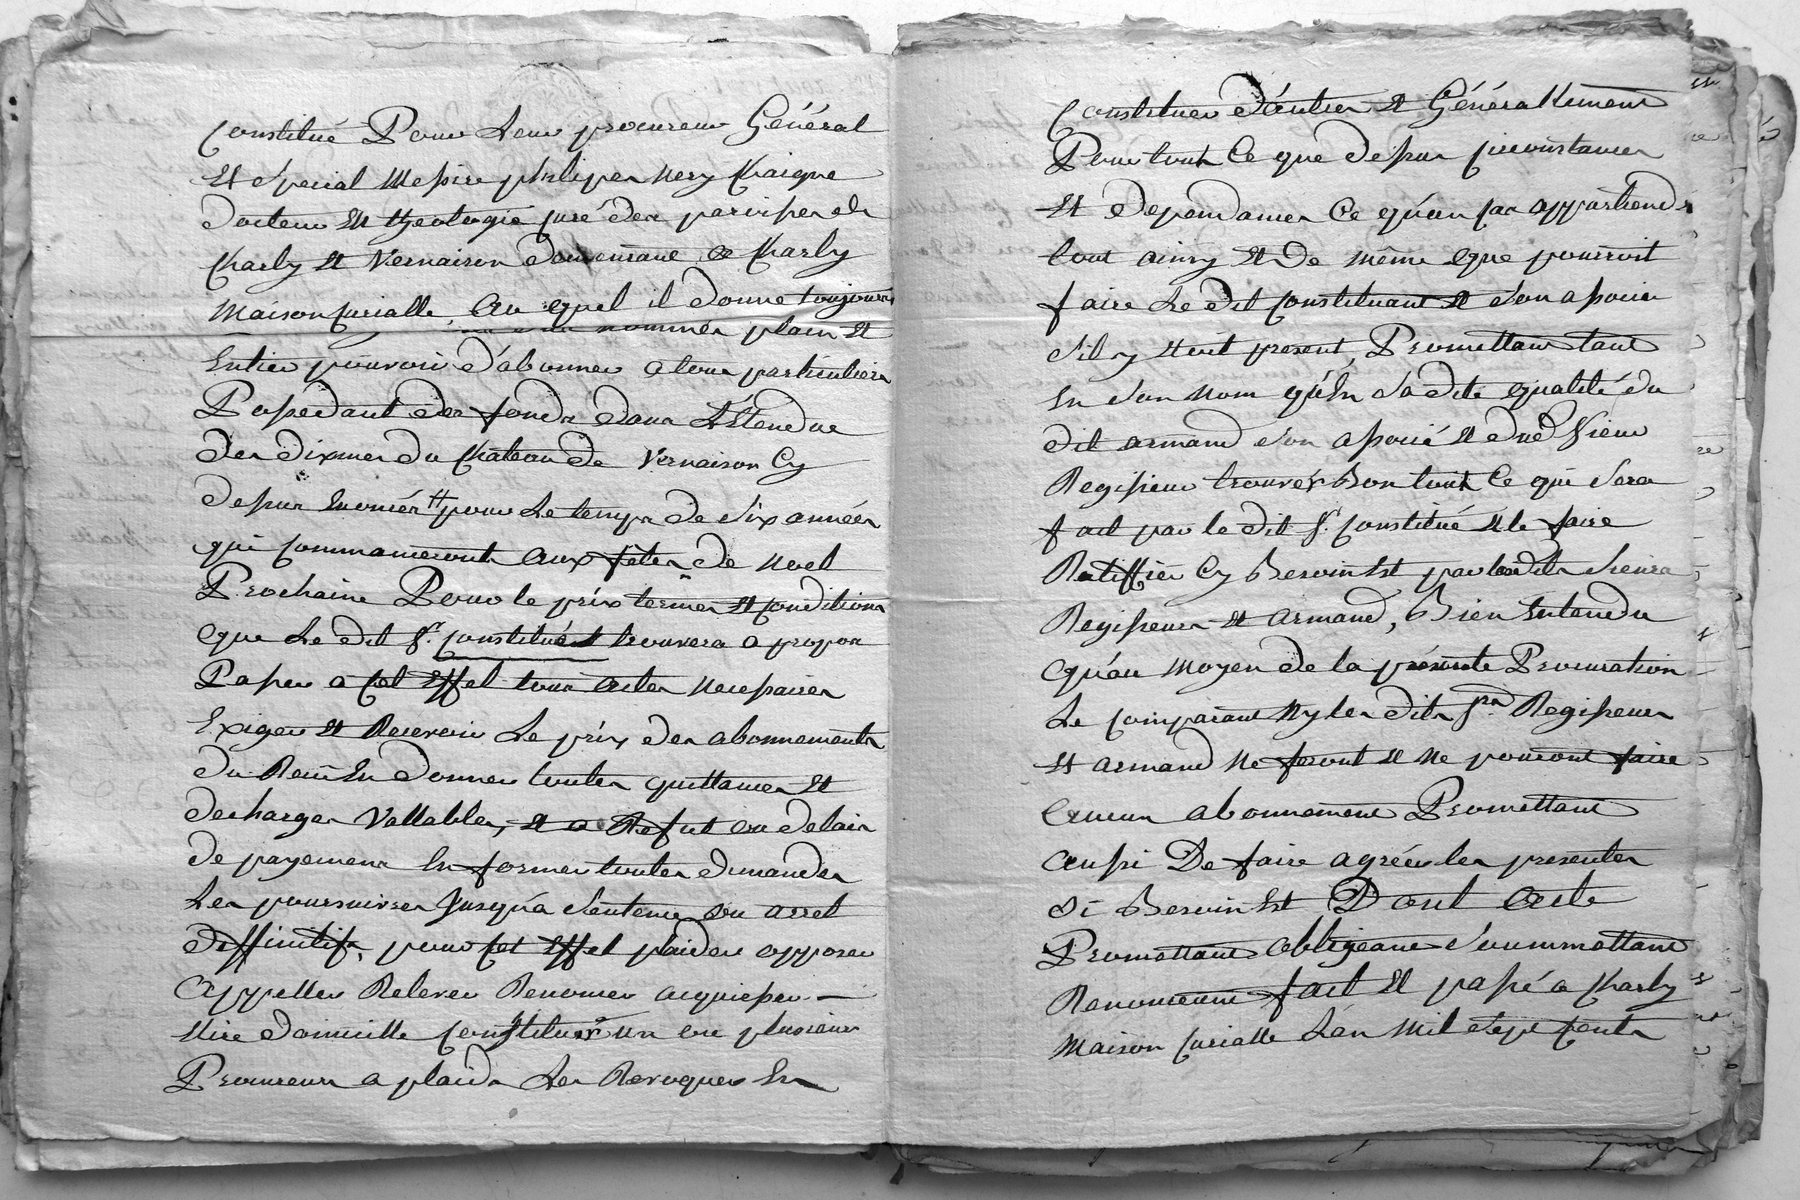 constitué Pour Leur procureur Général
Et Special Messire philipes Nery Chaigne
docteur En theologie curé des paroisses de
Charly Et Vernaison demeurant a Charly
Maison curialle, Au quel il donne toujours
nommés plain Et
Entier pouvoir d'abonner a tous particuliers
Possedant des fonds dans L'Etendue
des dixmes du Château de Vernaison Cy
dessus Enoncés pour Le temps de Six années
qui commanceront aux fêtes de Noel
Prochaine Pour le prix termes Et conditions
que Le dit Sr. constitué trouvera a propos
Passer a cet Effet tous actes necessaires
Exiger Et Recevoir Le prix des abonnements
du Recu En donner toutes quittances Et
decharges Vallables, Et a Refut ou delais
de payement En former toutes demandes
Les poursuivres Jusqu'a Sentence ou arret
deffinitifs, pour cet Effet plaider opposer
Appeller Relever Renoncer acquiesser
Elire domicille constituer un ou plusieurs
Procureurs a plaids Les Revoquer En
Constituer d'autres Et Générallement
Pour tout Ce que dessus circonstances
Et dependances Ce qu'au cas appartiendra
tout ainsy Et de même que pourroit
faire Le dit constituant Et Son associé
S'il y Etoit present, Promettant tant
En Son Nom qu'En Sa dite qualité du
dit armand Son associé Et dud. Sieur
Regisseur trouver Bon tout Ce qui Sera
fait par le dit Sr. constitué Et le faire
Ratiffier Cy Besoin Est par lesdits Sieurs
Regisseur Et armand, Bien Entendu
qu'au moyen de la présente Procuration
Le comparant Ny les dits Srs. Regisseur
Et armand Ne feront Et Ne pouront faire
aucun abonnement Promettant
aussi De faire agréer les presentes
Si Besoin Est Dont Acte
Promettant obligeant Soummettant
Renonceant fait Et passé a Charly
Maison curialle L'an Mil Sept Cents